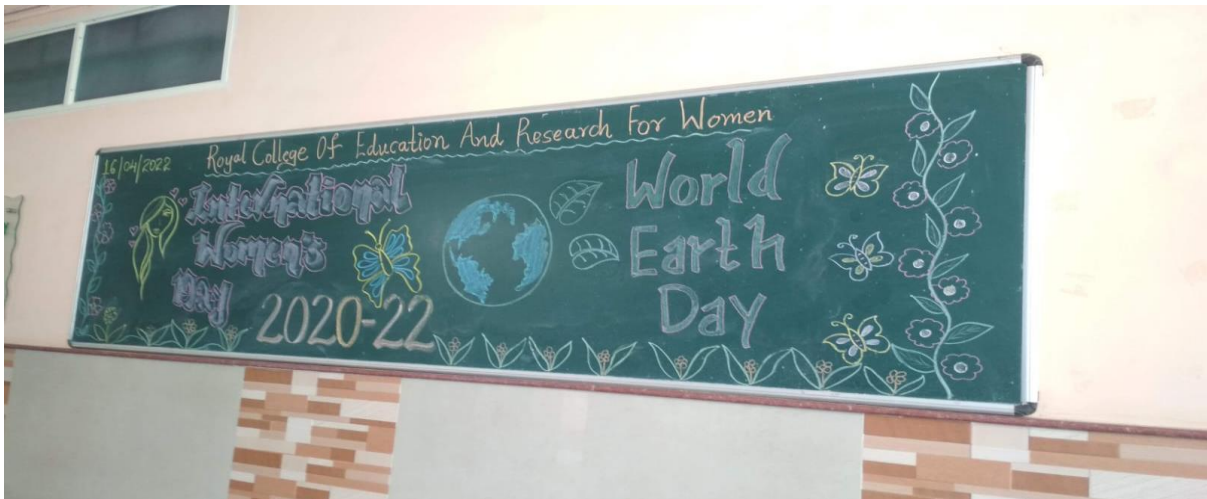 Royal College Of Education And Research For Women
16/04/2022
International
Women's
Day
2020-22
World
Earth
Day